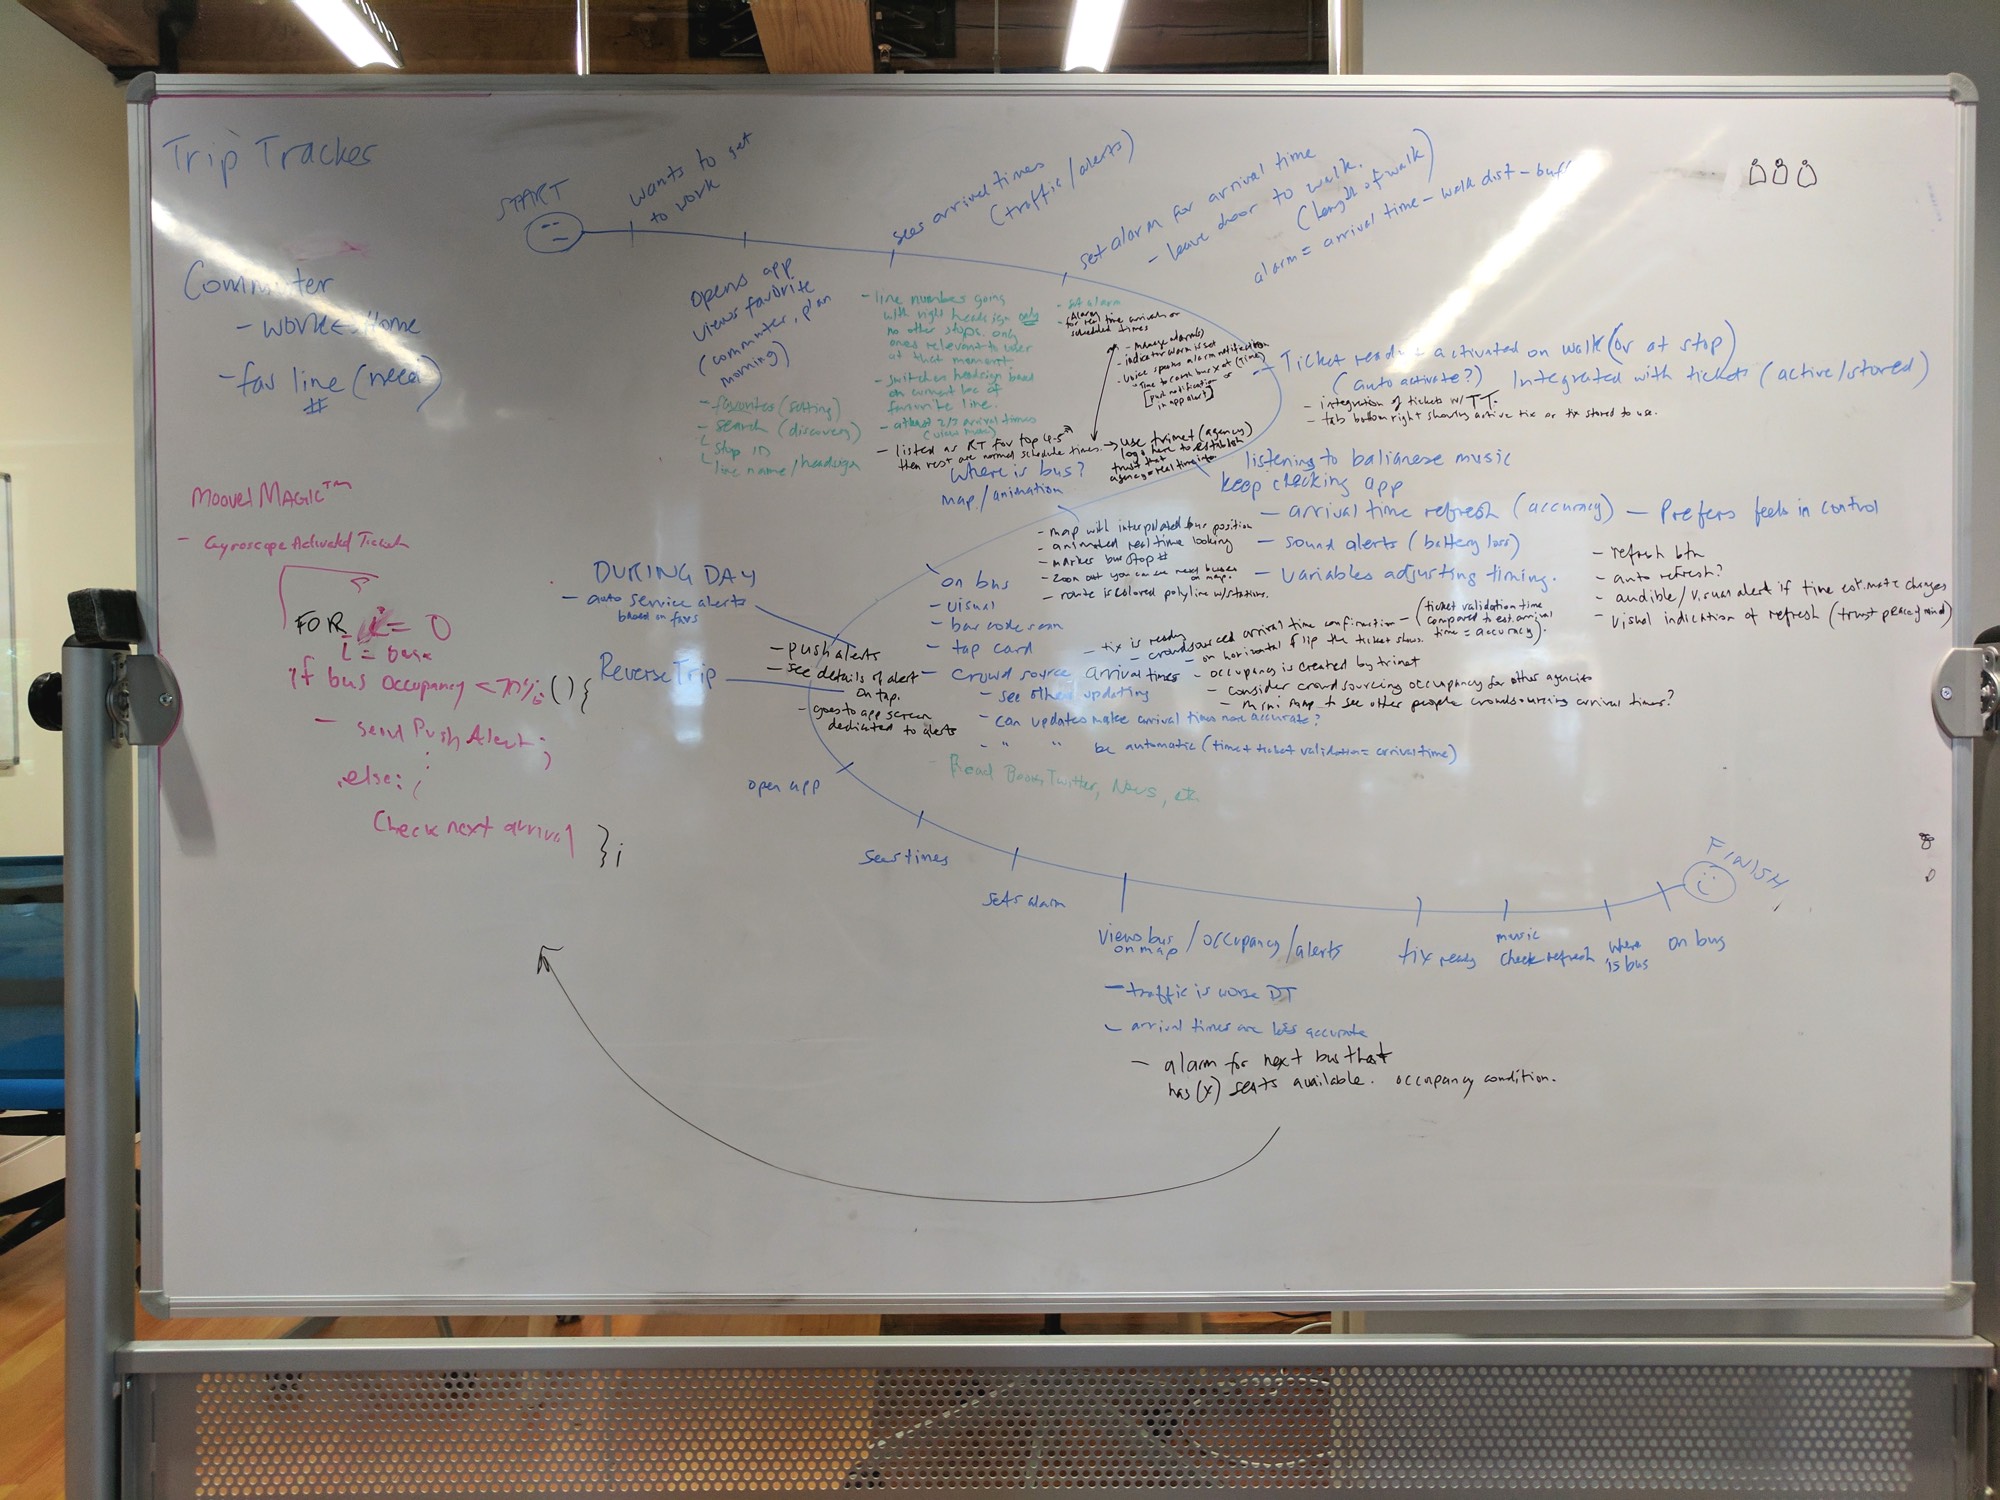 Trip Tracker
START
wants to get
to work
sees arrival times
(traffic/alerts)
set alarm for arrival time
- leave door to walk.
(length of walk)
alarm = arrival time - walk dist - buff
Commuter
- work <-> Home
- fav line (need)
#
opens app
views favorite
(commuter, plan
morning)
- favorites (setting)
- search (discovery)
└ stop ID
└ line name/headsign
- line numbers going
with right headsign only
no other stops. only
ones relevant to user
at that moment.
- switches headsign based
on current loc of
favorite line.
- atleast 2/3 arrival times
- listed as RT for top 4-5
then rest are normal schedule times.
- set alarm
- Alarm
for real time arrivals or
scheduled times
- manage alarm(s)
- indicator alarm is set
- voice spoken alarm notification
"Time to come bus x at (time)"
[push notification or
in app alert]
→ use trimet (agency)
logo here to establish
trust that
agency = real time info.
- Ticket ready + activated on walk (or at stop)
(auto activate?) Integrated with tickets (active/stored)
- integration of tickets w/ TT.
- tab bottom right showing active tix or tix stored to use.
Where is bus?
map/animation
listening to balianese music
keep checking app
- arrival time refresh (accuracy) - Prefers feels in control
- sound alerts (battery loss)
- variables adjusting timing.
- refresh btn
- auto refresh?
- audible/visual alert if time estimate changes
- visual indication of refresh (trust peace of mind)
- map with interpolated bus position
- animated real time looking
- marker bus stop #
- zoom out you can see next buses
on map.
- route is colored polyline w/stations.
Moovel MAGIC™
- Gyroscope Activated Ticket
FOR i = 0
i = base
if bus occupancy < 70% (){
- send Push Alert;
else:
Check next arrival
};
DURING DAY
- auto service alerts
based on favs
Reverse Trip
- push alerts
- see details of alert
on tap.
- goes to app screen
dedicated to alerts
on bus
- visual
- bar code scan
- tap card
- crowd source arrival times
- see others updating
- can updates make arrival times more accurate?
- " " be automatic (time + ticket validation = arrival time)
- Read Books, Twitter, News, etc.
- tix is ready
- crowdsourced arrival time confirmation - (ticket validation time
compared to est. arrival
time = accuracy).
- on horizontal flip the ticket shows.
- occupancy is created by trimet
- consider crowdsourcing occupancy for other agencies
- mini map to see other people crowdsourcing arrival times?
open app
sees times
sets alarm
views bus
on map
/occupancy/alerts
tix ready
music
check refresh
where
is bus
on bus
FINISH
- traffic is worse DT
- arrival times are less accurate
- alarm for next bus that
has (x) seats available. occupancy condition.